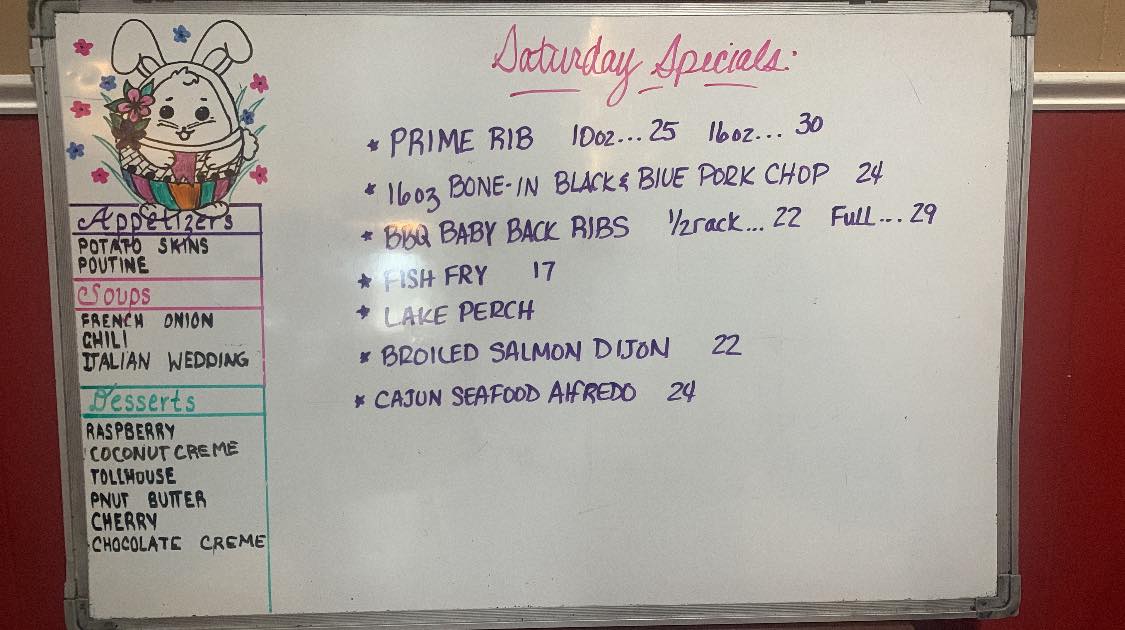 Saturday Specials:
* PRIME RIB 10oz... 25 16oz... 30
* 16oz BONE-IN BLACK & BLUE PORK CHOP 24
* BBQ BABY BACK RIBS 1/2 rack... 22 Full... 29
* FISH FRY 17
* LAKE PERCH
* BROILED SALMON DIJON 22
* CAJUN SEAFOOD ALFREDO 24
Appetizers
POTATO SKINS
POUTINE
Soups
FRENCH ONION
CHILI
ITALIAN WEDDING
Desserts
RASPBERRY
COCONUT CREME
TOLLHOUSE
PNUT BUTTER
CHERRY
CHOCOLATE CREME